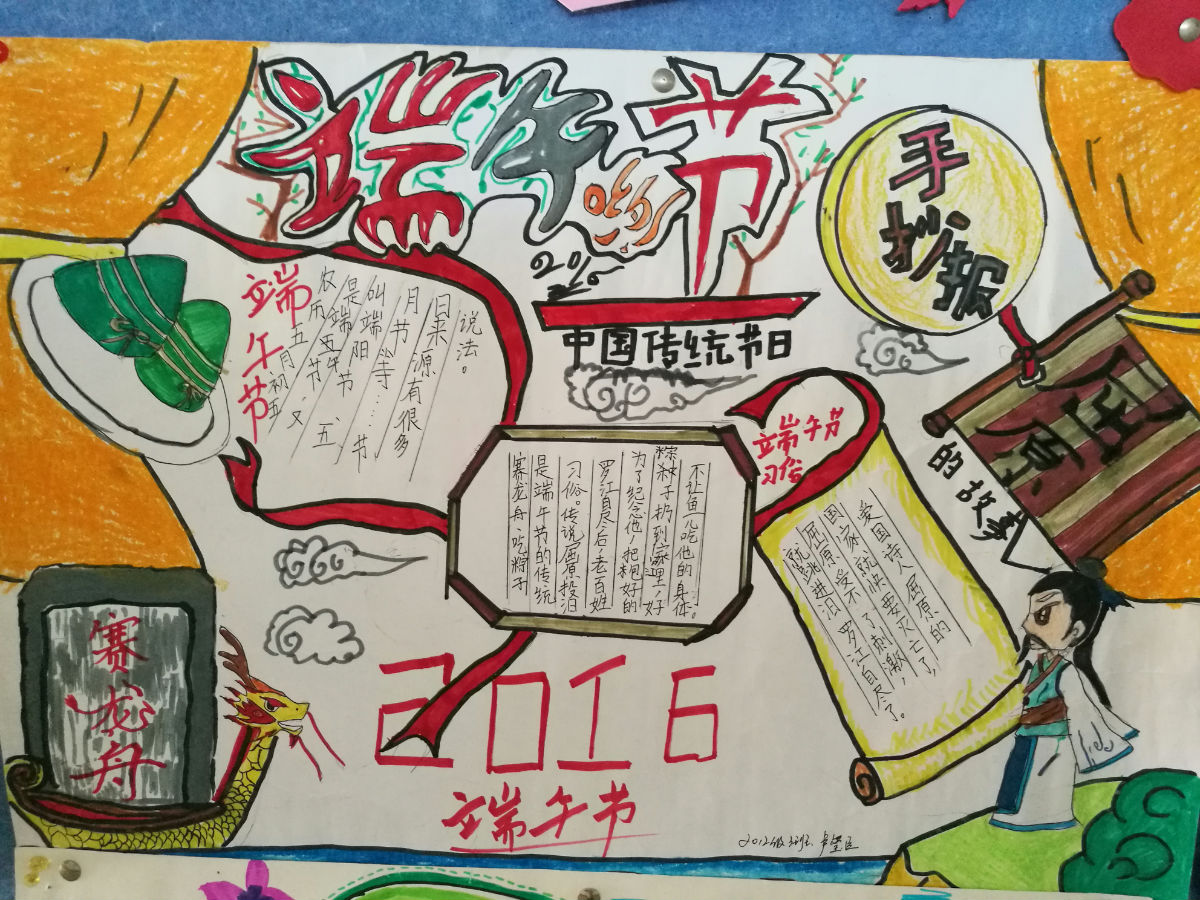 端午节
2016
中国传统节日
手抄报
屈原
的故事
端午节
农历五月初五
是端午节、又
叫端阳节、五
月节等……节
日来源有很多
说法。
端午节
习俗
赛龙舟、吃粽子
是端午节的传统
习俗。传说屈原投汨
罗江自尽后，老百姓
为了纪念他，把包好的
子扔到里，好
不让鱼儿吃他的身体。
爱国诗人屈原的
国家就快要灭亡了，
屈原受不了刺激，
就跳进汨罗江自尽了。
赛龙舟
2016
端午节
2012级